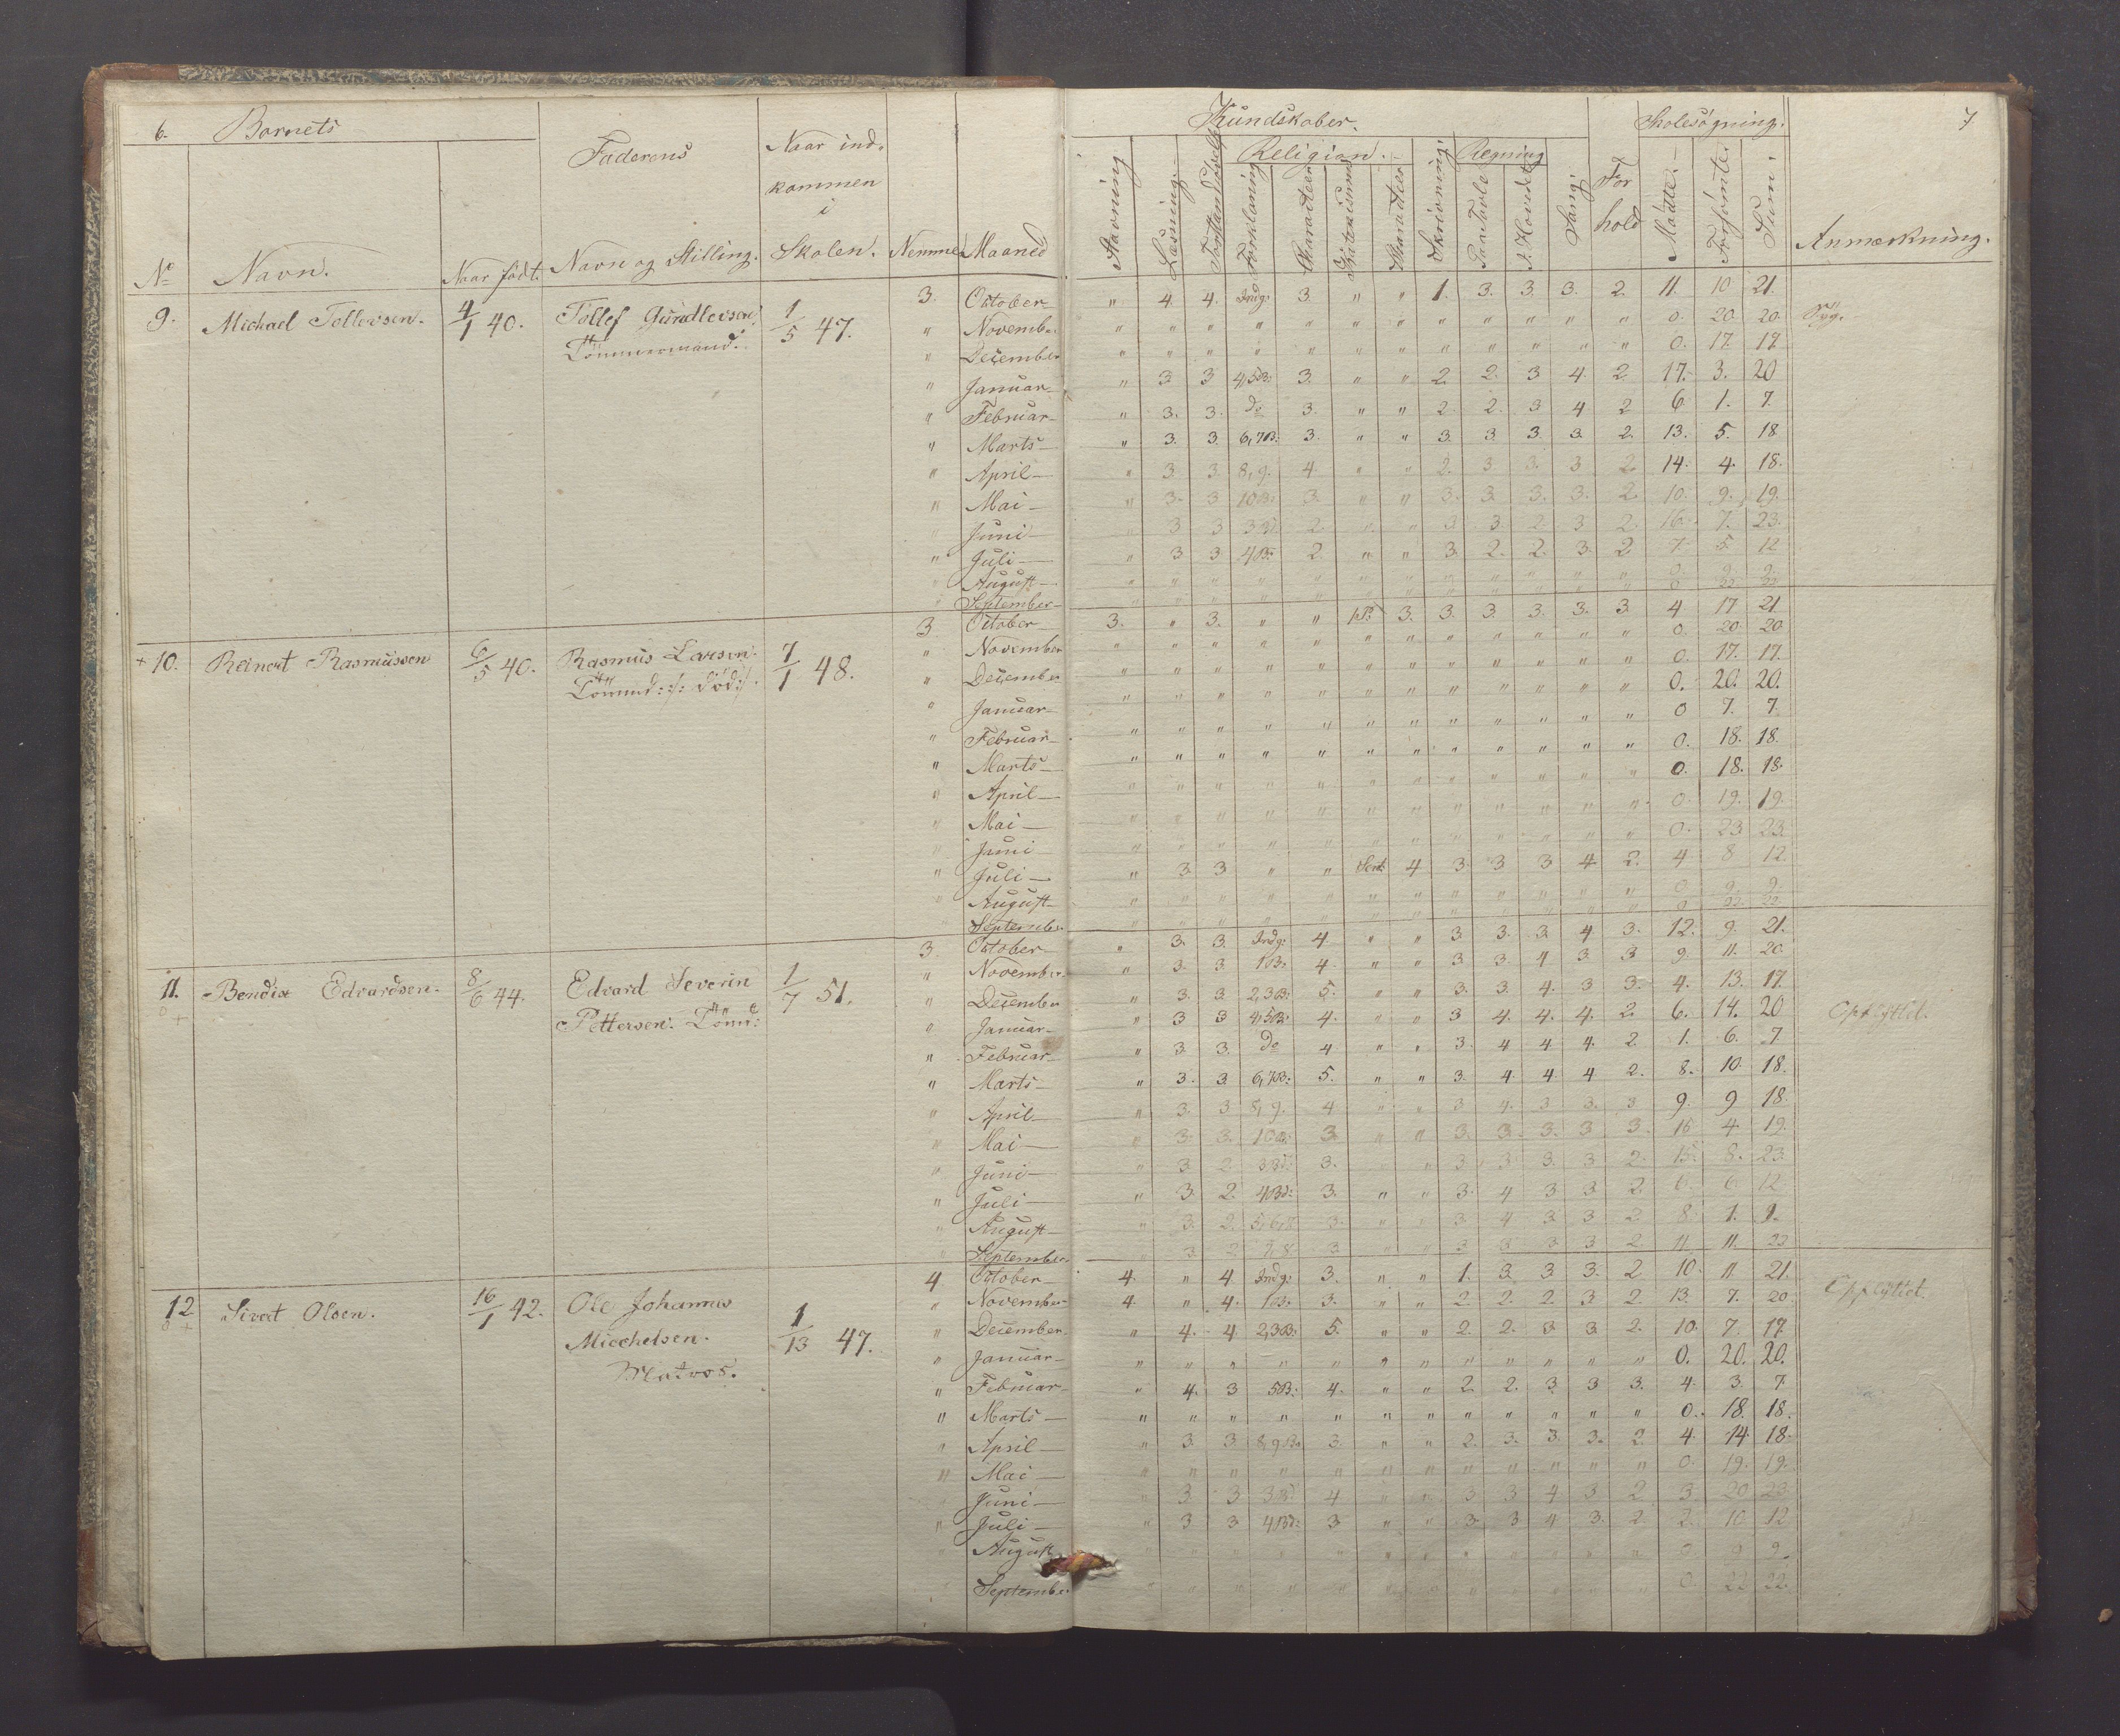 6. Barnets
Faderens
Naar ind-
kommen
i
Skolen.
No Navn. Naar födt. Navn og Stilling. Nemme Maaned
Kundskaber. Skolesögning. 7
Religion. Regning
Stavning Læsning Forklaring Characteer Skrivning Paa Tavle i Hovedet Sang. For
hold Mödte. Forsömte. Sum. Anmærkning.
9. Michael Tollevsen. 4/1 40. Tollef Gundlevsen 1/5 47. 3. October " 4. 4. Indg: 3. " " 1. 3. 3. 3. 2. 11. 10 21.
Tömmermand.
" November " " " " " " " " " " " " 0. 20. 20. Syg.
" December " " " " " " " " " " " " 0. 17. 17.
" Januar " 3. 3 4,5B: 3. " " 2. 2. 3 4. 2 17. 3. 20
" Februar " 3. 3. do 3. " " 2. 2. 3 4 2 6. 1. 7.
" Marts " 3. 3. 6,7B: 3. " " 3. 3. 3. 3. 2. 13. 5. 18
" April " 3. 3. 8,9. 4. " " 2. 3 3. 3 2. 14. 4. 18.
" Mai " 3. 3 10B: 3. " " 3. 3. 3. 3. 2. 10. 9. 19.
" Juni " 3 3 2. " " 3 3. 2. 3 2. 16. 7. 23.
" Juli " 3 3 4B: 2. " " 3. 2. 2. 3. 2 7. 5. 12
" August " " " " " " " " " " " " 0. 9. 9.
" September " " " " " " " " " " " " 0 22. 22
+ 10. Reinert Rasmussen 6/5 40. Rasmus Larsen. 7/1 48. 3 October 3. " 3. " " 3. 3. 3. 3. 3. 3. 4 17 21
Tömmd: :/: död:/.
" November " " " " " " " " " " " " 0. 20 20
" December " " " " " " " " " " " " 0. 17. 17.
" Januar " " " " " " " " " " " " 0. 20. 20.
" Februar " " " " " " " " " " " " 0 7. 7.
" Marts " " " " " " " " " " " " 0. 18. 18.
" April " " " " " " " " " " " " 0. 18. 18.
" Mai " " " " " " " " " " " " 0. 19. 19.
" Juni " " " " " " " " " " " " 0. 23 23.
" Juli " 3 3 " " 4 3. 3 3 4 2. 4 8 12.
" August " " " " " " " " " " " " 0 9. 9.
" September " " " " " " " " " " " " 0 22. 22.
11. Bendix Edvardsen. 8/6 44. Edvard Severin 1/7 51. 3. October " 3. 3. Indg: 4. " " 3 3. 3. 4 3. 12. 9. 21.
Pettersen. Tömd:
" November " 3. 3. 1B: 4. " " 3 3. 4 3. 3 9. 11. 20
" December " 3. 3. 2,3B: 5. " " 3. 3. 4. 3 3. 4. 13. 17.
" Januar " 3 3 4,5B: 4. " " 3 4. 4. 4. 2. 6. 14. 20 Opflyttet.
" Februar " 3. 3. do 4 " " 3. 4 4 4. 2 1. 6. 7
" Marts " 3. 3. 6,7B: 5. " " 3. 4. 4. 4 2. 8. 10. 18.
" April " 3. 3 8,9. 4 " " 3 4. 3 3. 3 9. 9 18.
" Mai " 3. 3. 10B: 3. " " 3. 3. 3. 3 3. 15 4. 19.
" Juni " 3 2 3. " " 3 3 3. 3 2. 15. 8. 23.
" Juli " 3. 2. 4Bd: 3. " " 3. 4 3 3 2 6. 6 12
" August " 3. 2. 3. " " 3 4 3 3 2 8. 1. 9.
" September " 3 2 7,8 3 " " 3 3 3 3 2. 11 11. 22
12. Sivert Olsen. 16/1 42. Ole Johannes 1/13 47. 4 October 4. " 4 Indg: 3. " " 1. 3. 3 3. 2 10. 11 21.
Micchelsen.
Matros.
" November 4. " 4. 1B: 3. " " 2. 2. 2. 3 2. 13. 7. 20 Opflyttet.
" December " 4. 4 2,3B: 5. " " 2. 2. 3 3. 2. 10. 7. 17.
" Januar " " " " " " " " " " " " 0. 20. 20.
" Februar " 4. 3 5B: 4. " " 2 2. 3 3 3. 4. 3. 7
" Marts " " " " " " " " " " " " 0. 18. 18.
" April " 3 3 8,9B: 3. " " 2. 3. 3. 3. 2. 4. 14. 18.
" Mai " " " " " " " " " " " " 0. 19. 19.
" Juni " 3 3 4 " " 3 3 4 3 2 3. 20 23
" Juli " 3 3 4Bd: 3 " " 3. 3 4 3. 2. 2. 10 12
" August " " " " " " " " " " " " 0. 9 9
" September " " " " " " " " " " " " 0. 22 22.